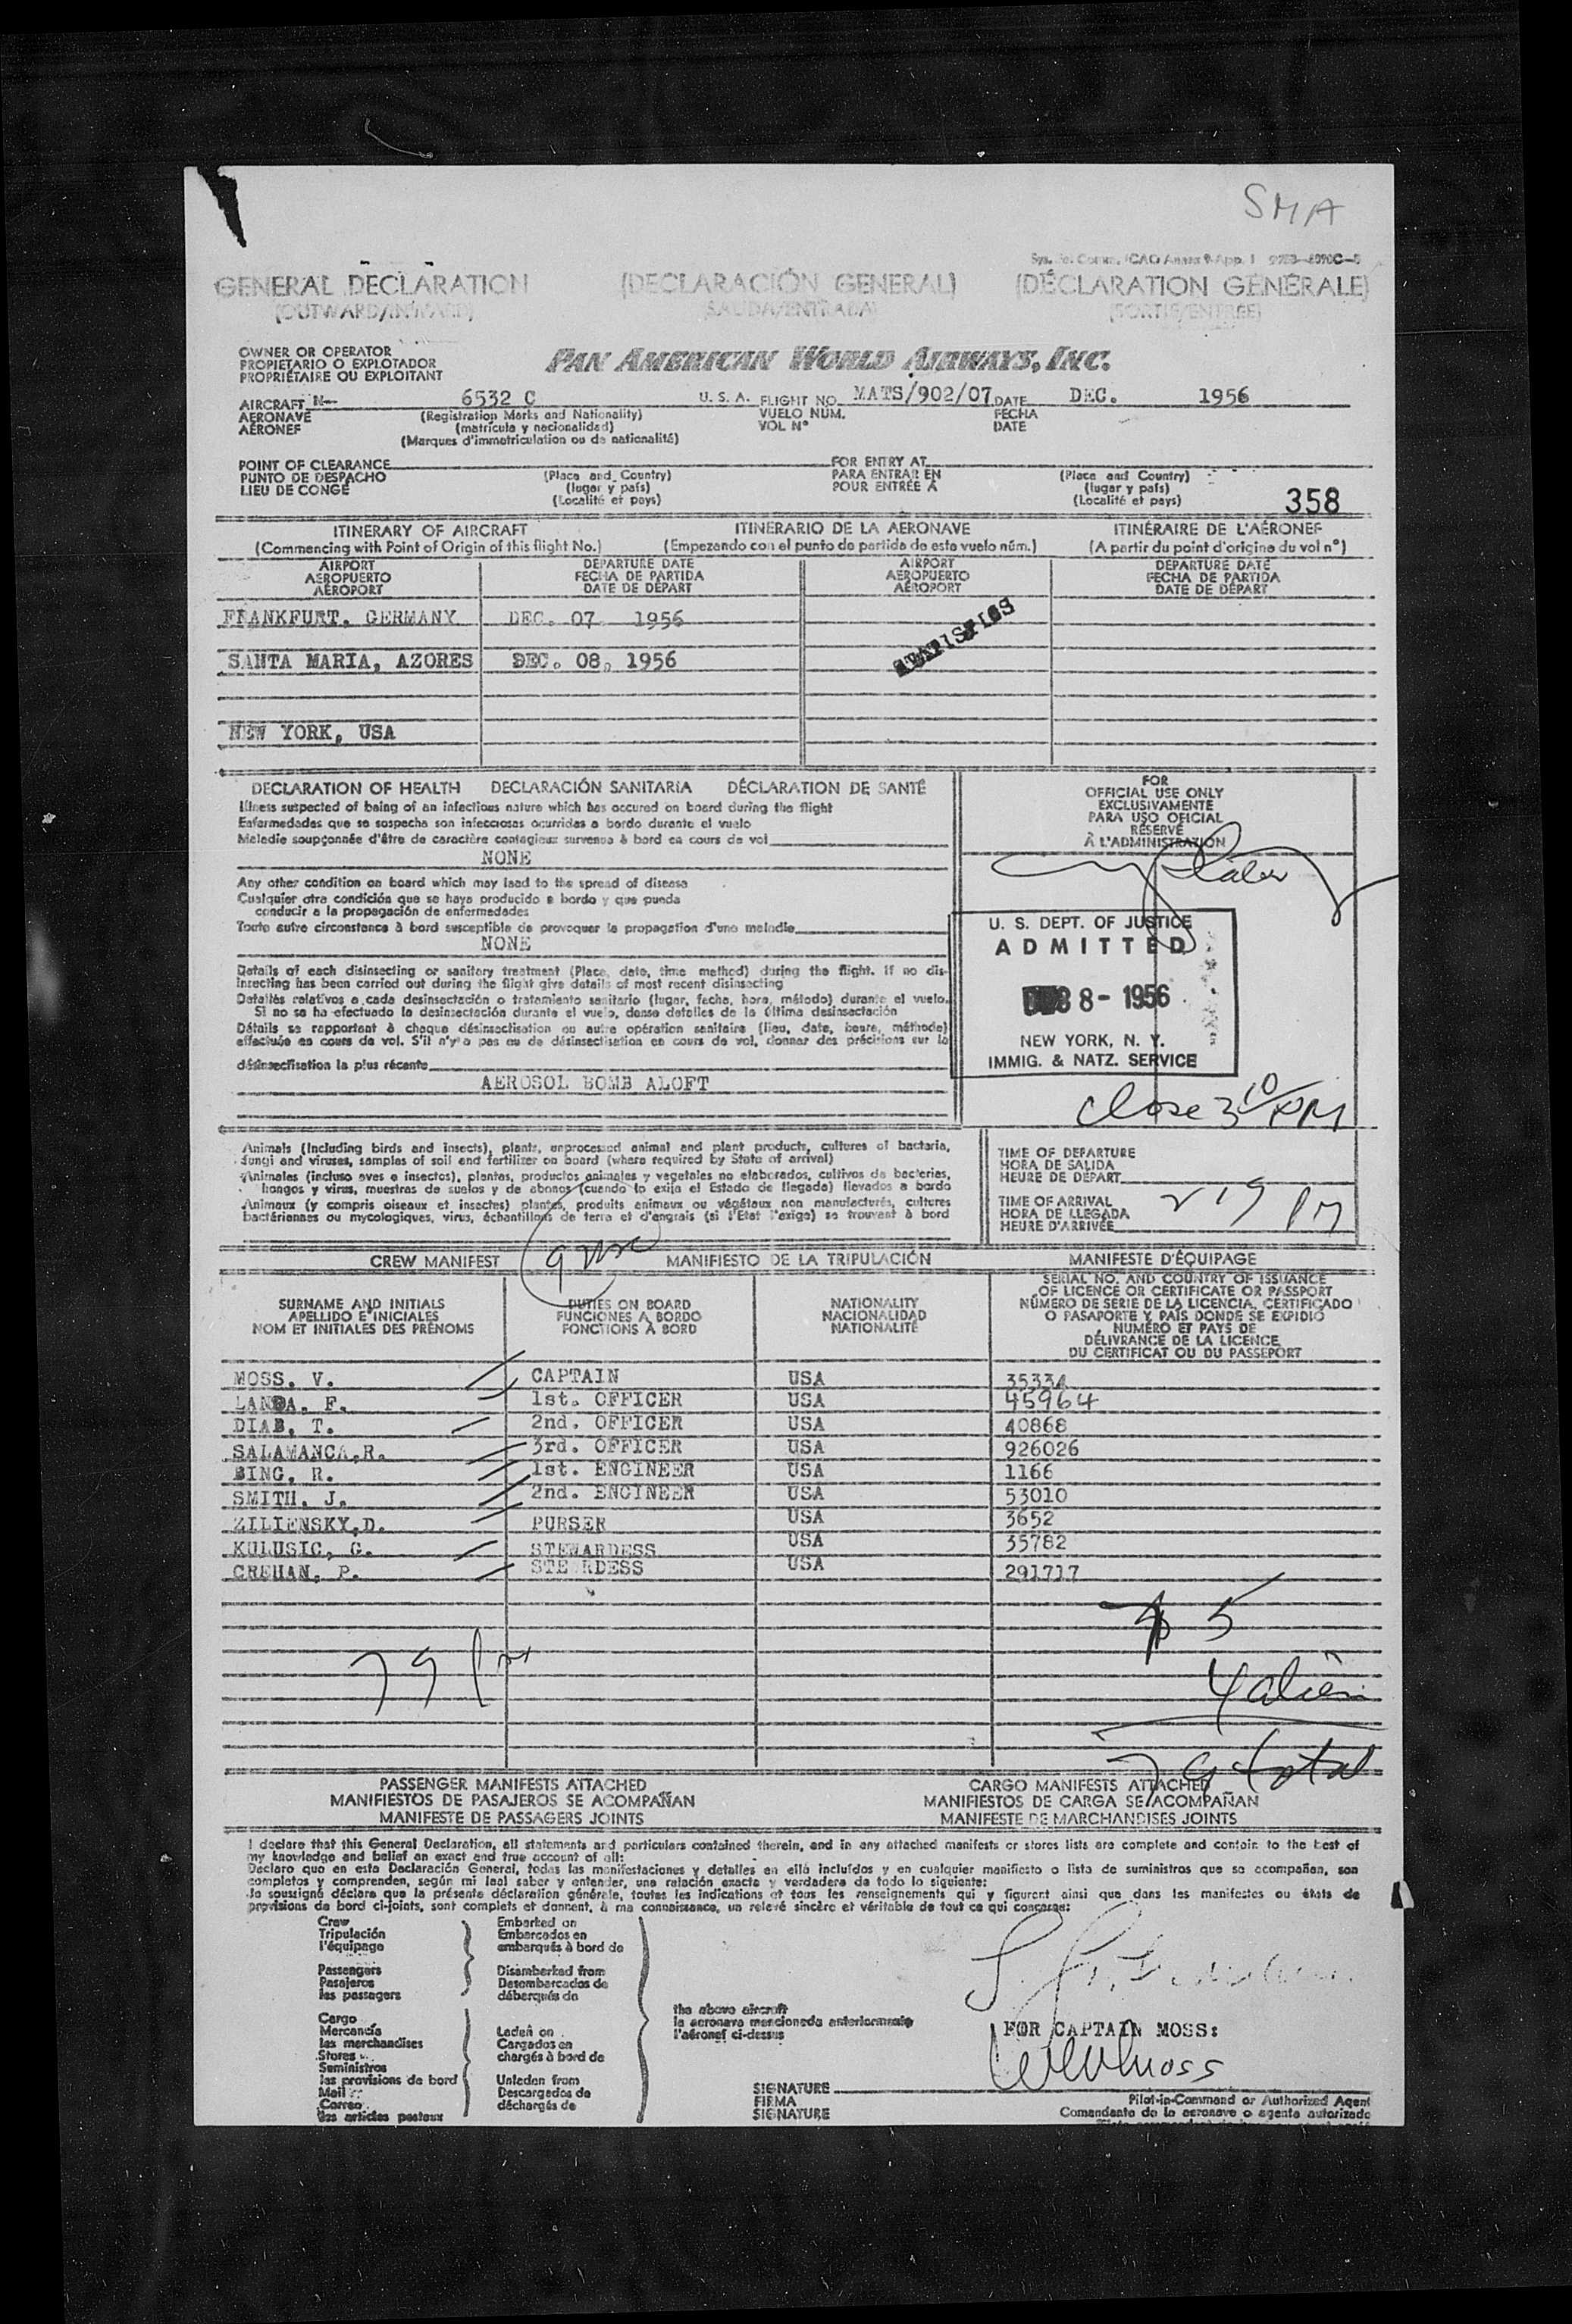 SMA
GENERAL DECLARATION (DECLARACIÓN GENERAL) (DÉCLARATION GÉNÉRALE)
(OUTWARD/INWARD) (SALIDA/ENTRADA) (SORTIE/ENTRÉE)
OWNER OR OPERATOR
PROPIETARIO O EXPLOTADOR
PROPRIÉTAIRE OU EXPLOITANT
PAN AMERICAN WORLD AIRWAYS, INC.
AIRCRAFT N- 6532 C U. S. A. FLIGHT NO. MATS/902/07 DATE DEC. 1956
AERONAVE (Registration Marks and Nationality) VUELO NÚM. FECHA
AÉRONEF (matrícula y nacionalidad) VOL Nº DATE
(Marques d'immatriculation ou de nationalité)
POINT OF CLEARANCE FOR ENTRY AT
PUNTO DE DESPACHO (Place and Country) PARA ENTRAR EN (Place and Country)
LIEU DE CONGÉ (lugar y país) POUR ENTRÉE À (lugar y país)
(Localité et pays) (Localité et pays) 358
ITINERARY OF AIRCRAFT ITINERARIO DE LA AERONAVE ITINÉRAIRE DE L'AÉRONEF
(Commencing with Point of Origin of this flight No.) (Empezando con el punto de partida de este vuelo núm.) (A partir du point d'origine du vol nº)
AIRPORT DEPARTURE DATE AIRPORT DEPARTURE DATE
AEROPUERTO FECHA DE PARTIDA AEROPUERTO FECHA DE PARTIDA
AÉROPORT DATE DE DÉPART AÉROPORT DATE DE DÉPART
FRANKFURT, GERMANY DEC. 07 1956
SANTA MARIA, AZORES DEC. 08, 1956
NEW YORK, USA
DECLARATION OF HEALTH DECLARACIÓN SANITARIA DÉCLARATION DE SANTÉ
Illness suspected of being of an infectious nature which has occured on board during the flight
Enfermedades que se sospecha son infecciosas ocurridas a bordo durante el vuelo
Maladie soupçonnée d'être de caractère contagieux survenue à bord en cours de vol
NONE
Any other condition on board which may lead to the spread of disease
Cualquier otra condición que se haya producido a bordo y que pueda
conducir a la propagación de enfermedades
Toute autre circonstance à bord susceptible de provoquer la propagation d'une maladie
NONE
Details of each disinsecting or sanitary treatment (Place, date, time method) during the flight. If no dis-
insecting has been carried out during the flight give details of most recent disinsecting
Detalles relativos a cada desinsectación o tratamiento sanitario (lugar, fecha, hora, método) durante el vuelo.
Si no se ha efectuado la desinsectación durante el vuelo, dense detalles de la última desinsectación
Détails se rapportant à chaque désinsectisation ou autre opération sanitaire (lieu, date, heure, méthode)
effectuée en cours de vol. S'il n'y a pas eu de désinsectisation en cours de vol, donner des précisions sur la
désinsectisation la plus récente
AEROSOL BOMB ALOFT
FOR
OFFICIAL USE ONLY
EXCLUSIVAMENTE
PARA USO OFICIAL
RÉSERVÉ
À L'ADMINISTRATION
U. S. DEPT. OF JUSTICE
ADMITTED
8 - 1956
NEW YORK, N. Y.
IMMIG. & NATZ. SERVICE
Close 3 10 PM
Animals (including birds and insects), plants, unprocessed animal and plant products, cultures of bacteria,
fungi and viruses, samples of soil and fertilizer on board (where required by State of arrival)
Animales (incluso aves e insectos), plantas, productos animales y vegetales no elaborados, cultivos de bacterias,
hongos y virus, muestras de suelos y de abonos (cuando lo exija el Estado de llegada) llevados a bordo
Animaux (y compris oiseaux et insectes) plantes, produits animaux ou végétaux non manufacturés, cultures
bactériennes ou mycologiques, virus, échantillons de terre et d'engrais (si l'Etat l'exige) se trouvant à bord
TIME OF DEPARTURE
HORA DE SALIDA
HEURE DE DÉPART
TIME OF ARRIVAL
HORA DE LLEGADA
HEURE D'ARRIVÉE
2 19 PM
CREW MANIFEST MANIFIESTO DE LA TRIPULACIÓN MANIFESTE D'ÉQUIPAGE
SURNAME AND INITIALS
APELLIDO E INICIALES
NOM ET INITIALES DES PRÉNOMS
DUTIES ON BOARD
FUNCIONES A BORDO
FONCTIONS À BORD
NATIONALITY
NACIONALIDAD
NATIONALITÉ
SERIAL NO. AND COUNTRY OF ISSUANCE
OF LICENCE OR CERTIFICATE OR PASSPORT
NÚMERO DE SERIE DE LA LICENCIA, CERTIFICADO
O PASAPORTE Y PAÍS DONDE SE EXPIDIÓ
NUMÉRO ET PAYS DE
DÉLIVRANCE DE LA LICENCE
DU CERTIFICAT OU DU PASSEPORT
MOSS. V. CAPTAIN USA 35334
LANDA. F. 1st. OFFICER USA 45964
DIAB, T. 2nd. OFFICER USA 40868
SALAMANCA,R. 3rd. OFFICER USA 926026
BING, R. 1st. ENGINEER USA 1166
SMITH. J. 2nd. ENGINEER USA 53010
ZILIENSKY,D. PURSER USA 3652
KULUSIC, G. STEWARDESS USA 35782
CREHAN, P. STEWARDESS USA 291717
5
4 alien
79 total
PASSENGER MANIFESTS ATTACHED CARGO MANIFESTS ATTACHED
MANIFIESTOS DE PASAJEROS SE ACOMPAÑAN MANIFIESTOS DE CARGA SE ACOMPAÑAN
MANIFESTE DE PASSAGERS JOINTS MANIFESTE DE MARCHANDISES JOINTS
I declare that this General Declaration, all statements and particulars contained therein, and in any attached manifests or stores lists are complete and contain to the best of
my knowledge and belief an exact and true account of all:
Declaro que en esta Declaración General, todas las manifestaciones y detalles en ella incluídos y en cualquier manifiesto o lista de suministros que se acompañan, son
completos y comprenden, según mi leal saber y entender, una relación exacta y verdadera de todo lo siguiente:
Je soussigné déclare que la présente déclaration générale, toutes les indications et tous les renseignements qui y figurent ainsi que dans les manifestes ou états de
provisions de bord ci-joints, sont complets et donnent, à ma connaissance, un relevé sincère et véritable de tout ce qui concerne:
Crew
Tripulación
l'équipage
Passengers
Pasajeros
les passagers
Cargo
Mercancía
les marchandises
Stores
Suministros
les provisions de bord
Mail
Correo
les articles postaux
Embarked on
Embarcados en
embarqués à bord de
Disembarked from
Desembarcados de
débarqués de
Laden on
Cargados en
chargés à bord de
Unladen from
Descargados de
déchargés de
the above aircraft
la aeronave mencionada anteriormente
l'aéronef ci-dessus
FOR CAPTAIN MOSS:
SIGNATURE
FIRMA
SIGNATURE
Pilot-in-Command or Authorized Agent
Comandante de la aeronave o agente autorizado